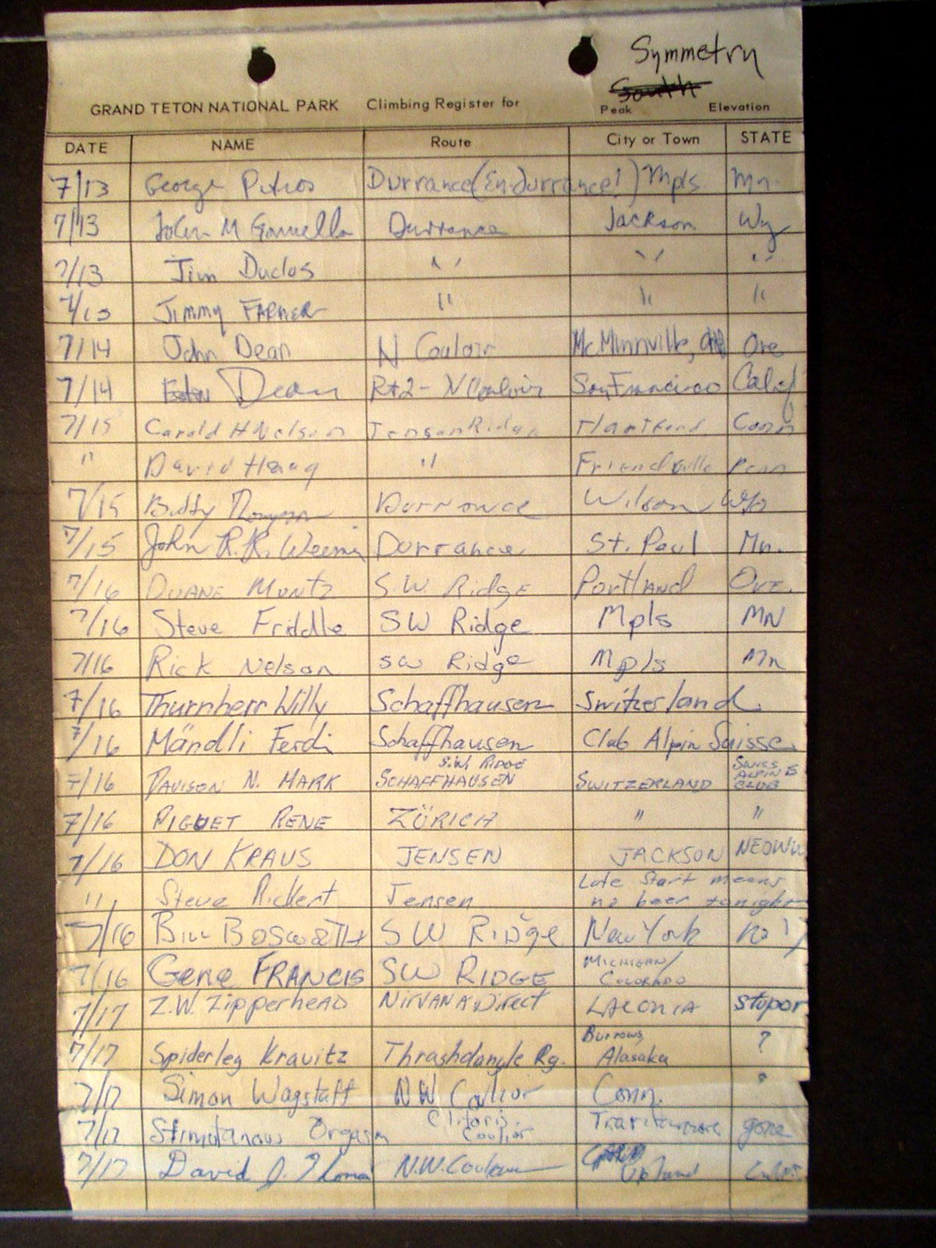 Symmetry
South
GRAND TETON NATIONAL PARK Climbing Register for Peak Elevation
DATE NAME Route City or Town STATE
7/13 George Durrance (En-durrance!) Mpls Mn.
7/13 John M Durrance Jackson Wy
7/13 Jim Duclos " " "
7/13 Jimmy FARMER " " "
7/14 John Dean N Couloir McMinnville, Ore
7/14 Dean Rt 2 - N Couloir San Francisco Calif
7/15 Carold H Nelson Jensen Ridge Hartford Conn
" David Haag " Friendville Penn
7/15 Durrance Wilson Wyo
7/15 John R.R. Durrance St. Paul Mn.
7/16 DUANE MUNTZ S.W. RIDGE Portland Ore.
7/16 Steve Friddle SW Ridge Mpls MN
7/16 Rick Nelson SW Ridge Mpls Mn
7/16 Thurnherr Willy Schaffhausen Switzerland
7/16 Mändli Ferdi Schaffhausen Club Alpin Suisse
7/16 DAVISON N. MARK S.W. RIDGE SCHAFFHAUSEN SWITZERLAND SWISS ALPINE CLUB
7/16 PIGUET RENE ZÜRICH " "
7/16 DON KRAUS JENSEN JACKSON
" Steve Rickert Jensen Late start means no beer tonight
7/16 BILL BOSWORTH SW Ridge New York
7/16 Gene FRANCIS SW RIDGE MICHIGAN/ COLORADO
7/17 Z.W. Zipperhead NIRVANA Direct LACONIA stupor
7/17 Spiderleg Kravitz Thrashdangle Rg. Burrows, Alasaka ?
7/17 Simon Wagstaff NW Coulior Conn. "
7/17 Stimutanous Orgasm Clitoris Coulior gone
7/17 David J. N.W. Couloir Upland